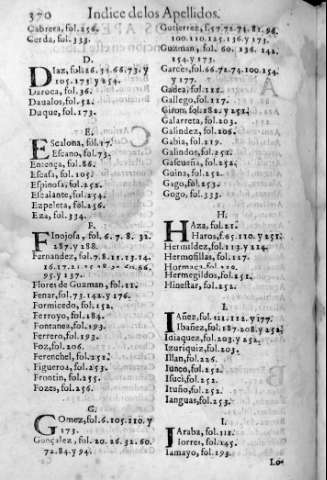 370 Indice de los Apellidos.
Cabrera, fol. 256.
Cerda, fol. 333.
D.
Diaz, fol. 26. 34. 66. 73. y
105. 175. y 254.
Daroca, fol. 36.
Daualos, fol. 52.
Duque, fol. 173.
E.
Escalona, fol. 17.
Escano, fol. 73.
Entença, fol. 86.
Escasa, fol. 105.
Espinosa, fol. 252.
Escalante, fol. 254.
Ezpeleta, fol. 256.
Eza, fol. 334.
F.
Finojosa, fol. 6. 7. 8. 32.
287. y 288.
Farnandez, fol. 7. 8. 11. 13. 14.
16. 17. 21. 66.
95. y 137.
Flores de Guzman, fol. 11.
Fenar, fol. 73. 142. y 176.
Formicedo, fol. 152.
Ferroyo, fol. 184.
Fontanez, fol. 193.
Ferrero, fol. 193.
Foz, fol. 206.
Ferenchel, fol. 251.
Figueroa, fol. 253.
Frontin, fol. 255.
Fozes, fol. 256.
G.
Gomez, fol. 6. 105. 110. y
173.
Gonçalez, fol. 20. 26. 32. 60.
72. 84. y 94.
Gutierrez, f. 57. 72. 74. 81. 96.
100. 110. 125. 136. y 173.
Guzman, fol. 60. 136. 142.
154. y 173.
Garces, fol. 66. 72. 74. 100. 154.
y 177.
Gadea, fol. 115.
Gallego, fol. 117.
Giron, fol. 182. y 251.
Galarreta, fol. 203.
Galindez, fol. 206.
Gabia, fol. 219.
Galindos, fol. 251.
Gascueña, fol. 252.
Guina, fol. 252.
Gago, fol. 253.
Gogo, fol. 333.
H.
Haza, fol. 21.
Haros, fol. 65. 110. y 251.
Hernildez, fol. 113. y 124.
Hermosillas, fol. 117.
Hormaça, fol.
Hermegildos, fol. 251.
Hinestar, fol. 252.
I.
Iañez, fol. 111. 112. y 177.
Ibañez, fol. 187. 208. y 252.
Idiaquez, fol. 203. y 252.
Izuriquiz, fol. 203.
Illan, fol. 226.
Iunco, fol. 252.
Isuci, fol. 252.
Ituño, fol. 252.
Ianguas, fol. 253.
I.
Iaraba, fol. 112.
Iorres, fol. 145.
Iamayo, fol. 193.
Lo-